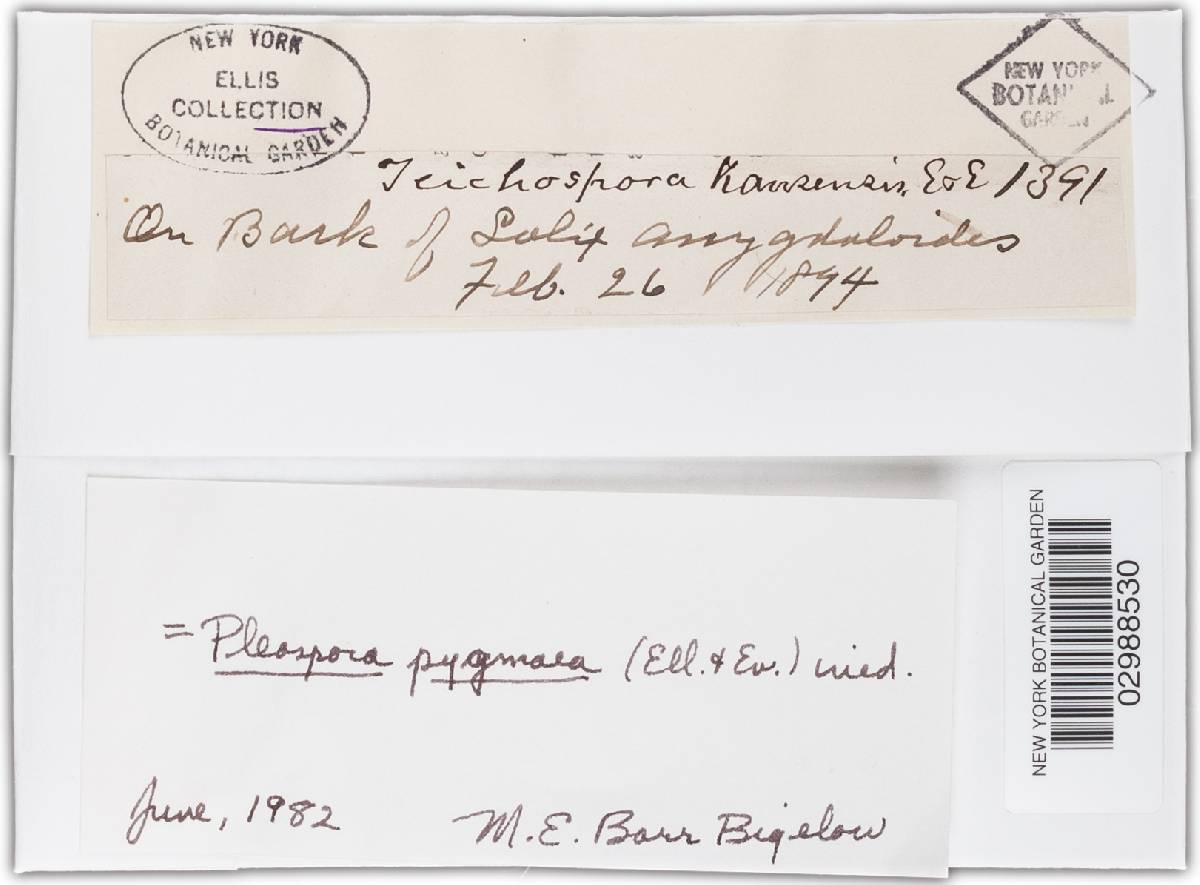 NEW YORK
ELLIS
COLLECTION
BOTANICAL GARDEN
NEW YORK
BOTANICAL
GARDEN
Teichospora Kansensis, E&E 1391
On Bark of Salix amygdaloides
Feb. 26 1894
= Pleospora pygmaea (Ell. & Ev.) ined.
June, 1982 M. E. Barr Bigelow
NEW YORK BOTANICAL GARDEN
02988530